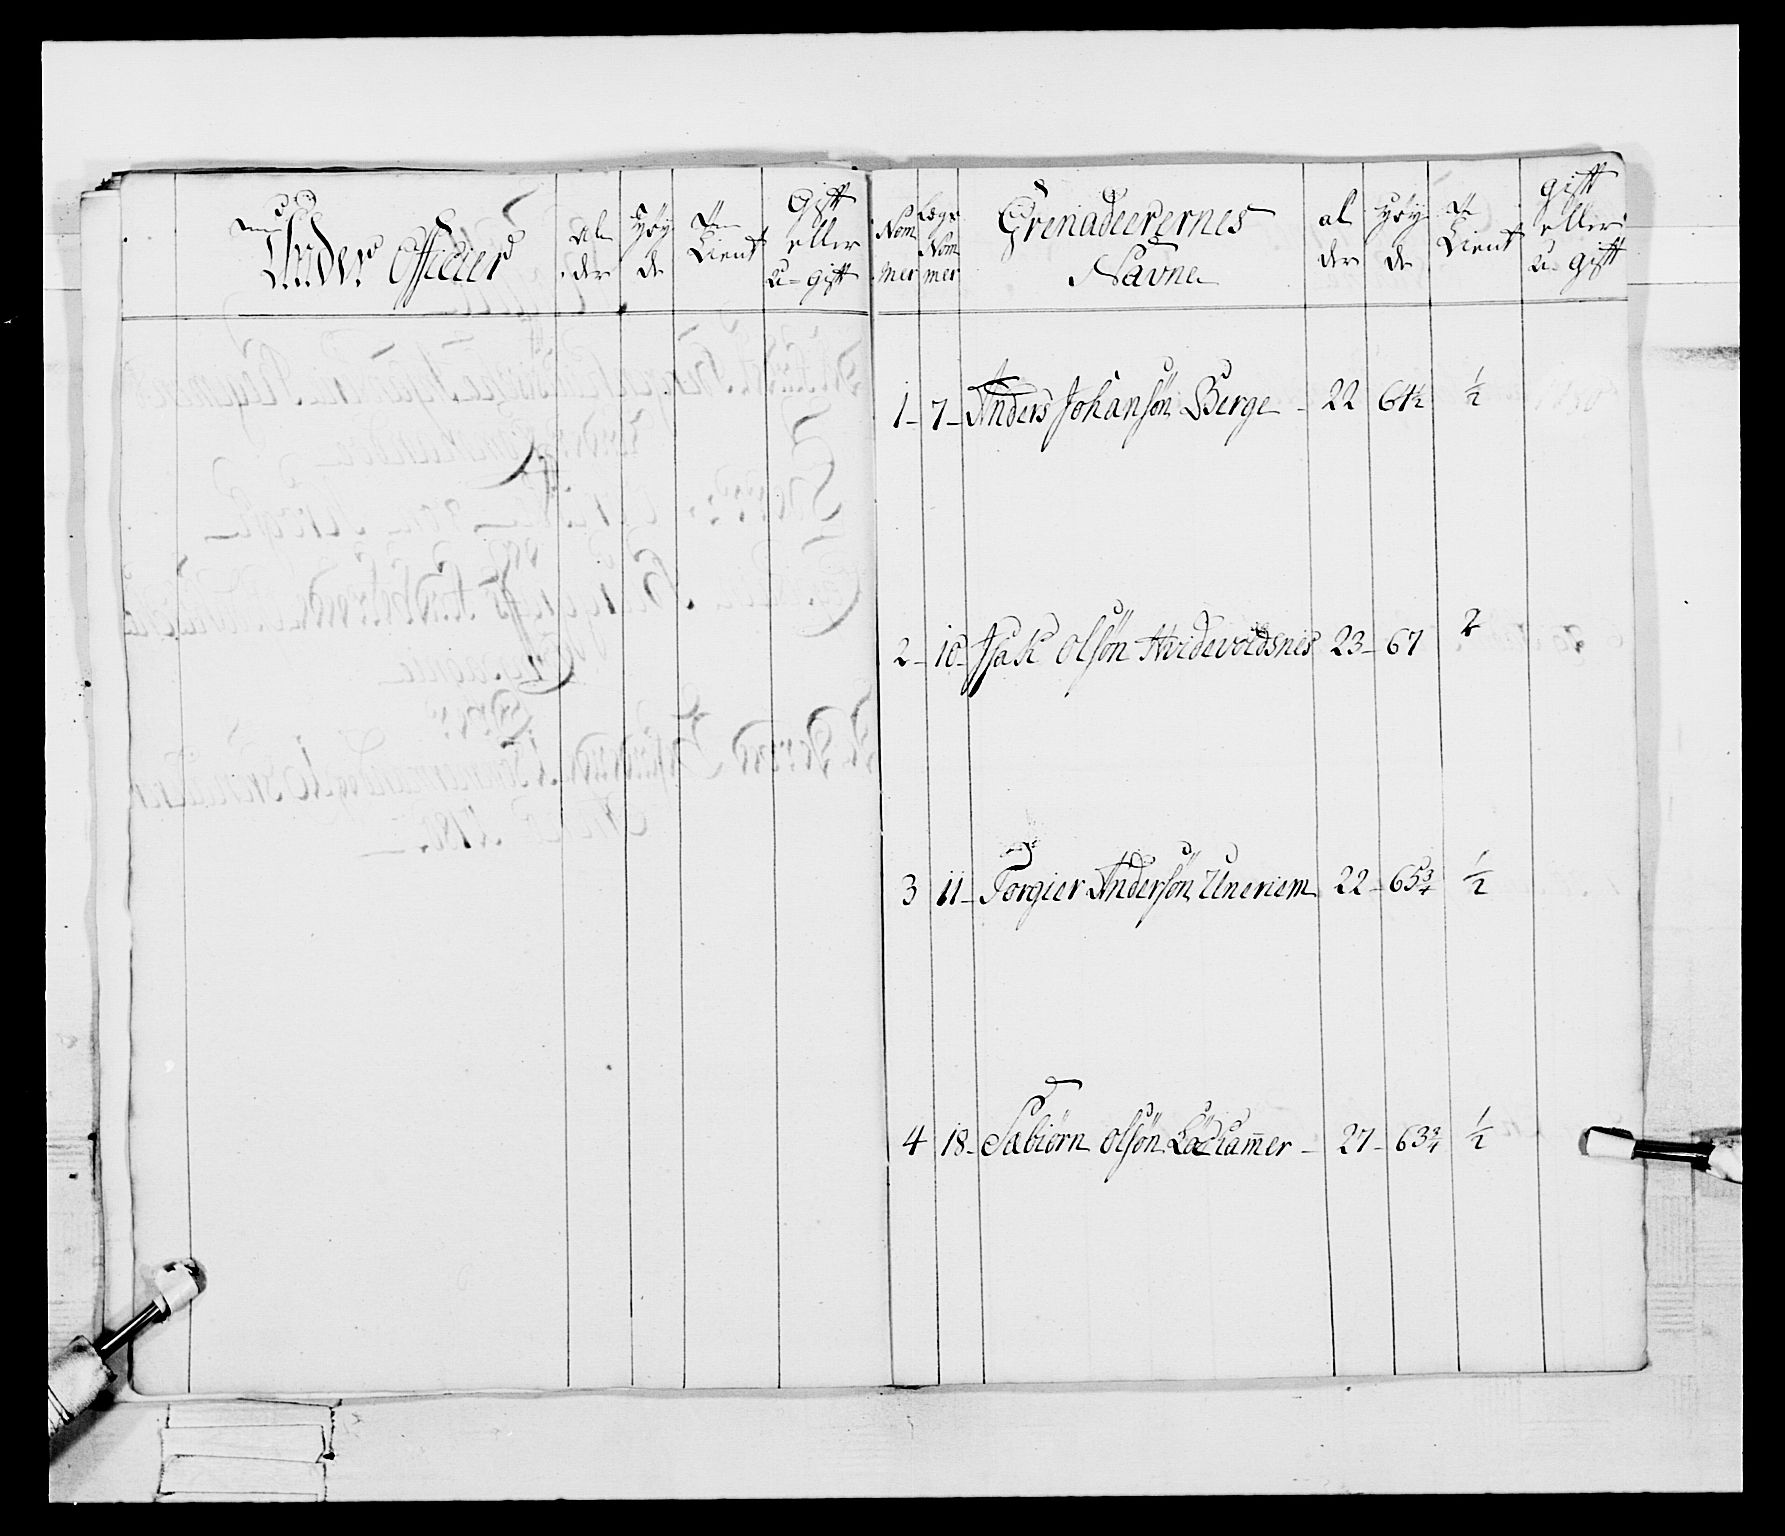 Under Officier
Al
der
Høy
de
Tient
Gift
eller
u- gift
Nom
mer
Lægs
Nom
mer
Grenadeerernes
Navne
al
der
Høy
de
Tient
gift
eller
u- gift
1- 7- Anders Johansön Berge - 22 64½ ½
2- 10- Isak Olsön Hvidevoldsnes 23- 67 2
3 11- Torgier Andersön Uneriem 22- 65¾ ½
4 18- Sabiörn Olsön - 27- 63¾ ½